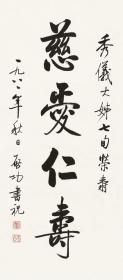 秀儀大姊七旬榮壽
慈愛仁壽
一九八二年秋日啟功書祝